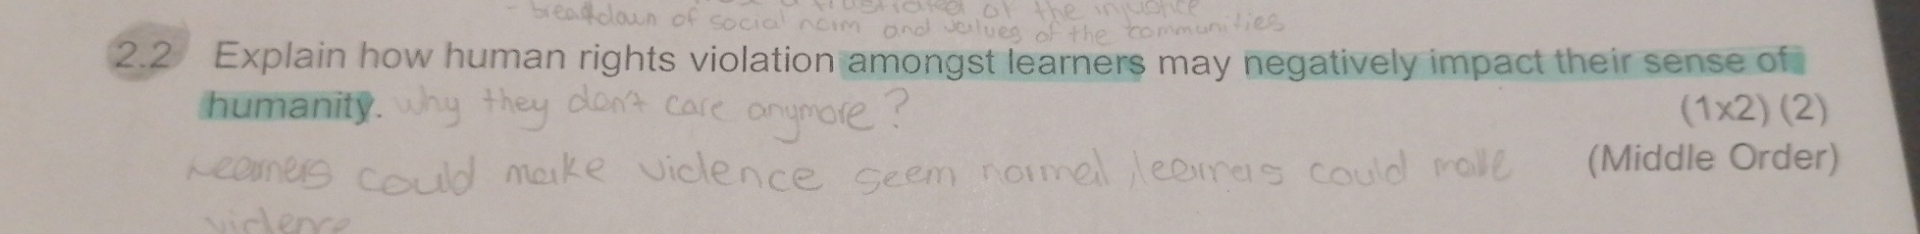 - breakdown of social norm and values of the communities
2.2 Explain how human rights violation amongst learners may negatively impact their sense of
humanity. why they don't care anymore? (1x2) (2)
Learners could make violence seem normal, learners could make (Middle Order)
violence